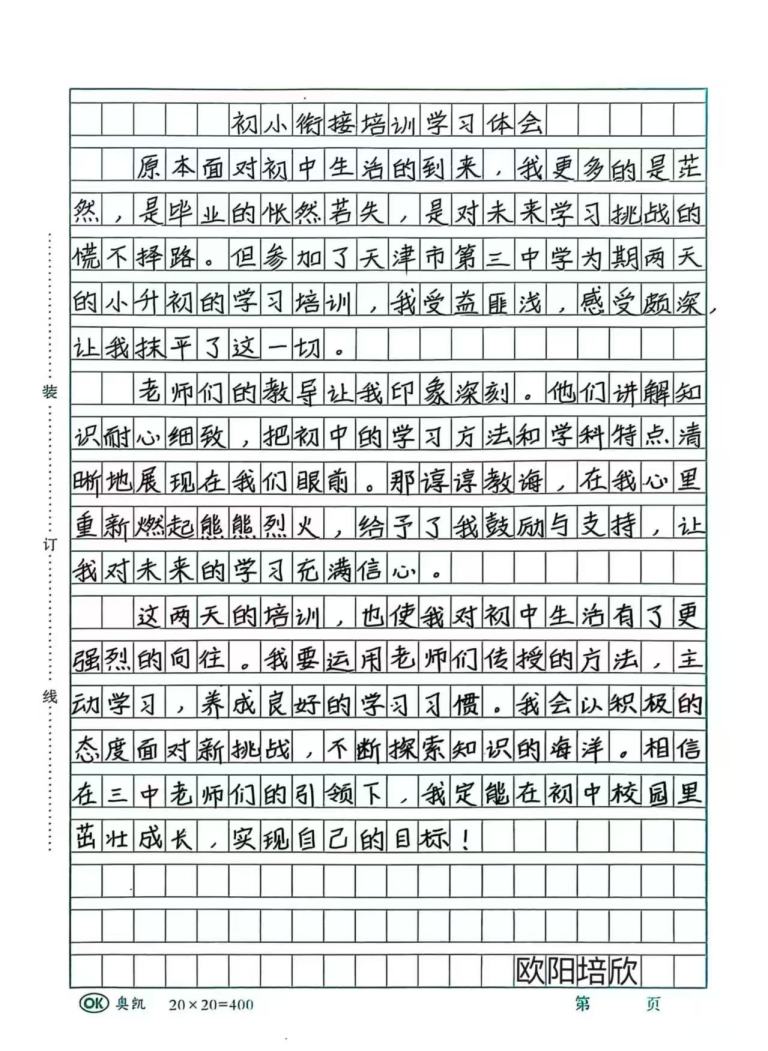 初小衔接培训学习体会
原本面对初中生活的到来，我更多的是茫
然，是毕业的怅然若失，是对未来学习挑战的
慌不择路。但参加了天津市第三中学为期两天
的小升初的学习培训，我受益匪浅，感受颇深，
让我抹平了这一切。
老师们的教导让我印象深刻。他们讲解知
识耐心细致，把初中的学习方法和学科特点清
晰地展现在我们眼前。那谆谆教诲，在我心里
重新燃起熊熊烈火，给予了我鼓励与支持，让
我对未来的学习充满信心。
这两天的培训，也使我对初中生活有了更
强烈的向往。我要运用老师们传授的方法，主
动学习，养成良好的学习习惯。我会以积极的
态度面对新挑战，不断探索知识的海洋。相信
在三中老师们的引领下，我定能在初中校园里
茁壮成长，实现自己的目标！
欧阳培欣
装
订
线
OK 奥凯 20×20=400 第 页